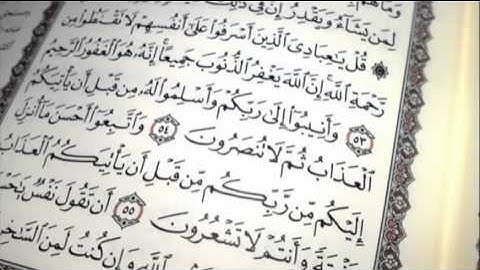 وَمَا هُم
لِمَن يَشَآءُ وَيَقْدِرُ إِنَّ فِي ذَٰلِكَ
۞ قُلْ يَٰعِبَادِيَ ٱلَّذِينَ أَسْرَفُوا۟ عَلَىٰٓ أَنفُسِهِمْ لَا تَقْنَطُوا۟ مِن
رَّحْمَةِ ٱللَّهِ إِنَّ ٱللَّهَ يَغْفِرُ ٱلذُّنُوبَ جَمِيعًا إِنَّهُۥ هُوَ ٱلْغَفُورُ ٱلرَّحِيمُ
٥٣ وَأَنِيبُوٓا۟ إِلَىٰ رَبِّكُمْ وَأَسْلِمُوا۟ لَهُۥ مِن قَبْلِ أَن يَأْتِيَكُمُ
ٱلْعَذَابُ ثُمَّ لَا تُنصَرُونَ ٥٤ وَٱتَّبِعُوٓا۟ أَحْسَنَ مَآ أُنزِلَ
إِلَيْكُم مِّن رَّبِّكُم مِّن قَبْلِ أَن يَأْتِيَكُمُ ٱلْعَذَابُ
بَغْتَةً وَأَنتُمْ لَا تَشْعُرُونَ ٥٥ أَن تَقُولَ نَفْسٌ
ٱللَّهِ وَإِن كُنتُ لَمِنَ